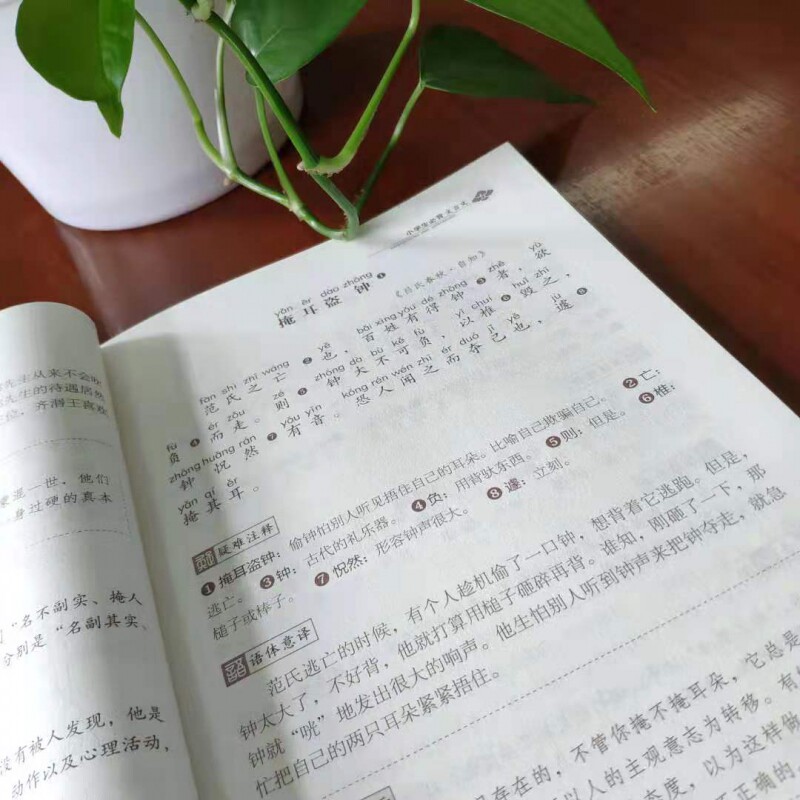 先生从来不会吹
先生的待遇居然
位。齐湣王喜欢
混一世，他们
身过硬的真本
“名不副实、掩人
分别是“名副其实、
没有被人发现，他是
动作以及心理活动，
yǎn ěr dào zhōng
掩耳盗钟❶
《吕氏春秋·自知》
fàn shì zhī wáng yě bǎi xìng yǒu dé zhōng zhě yù
范氏之亡❷也，百姓有得钟❸者，欲
fù ér zǒu zé zhōng dà bù kě fù yǐ chuí huǐ zhī
负❹而走。则❺钟大不可负，以椎❻毁之，
zhōng huǎng rán yǒu yīn kǒng rén wén zhī ér duó jǐ yě jù
钟怳然❼有音。恐人闻之而夺己也，遽❽
yǎn qí ěr
掩其耳。
疑难注释
❶掩耳盗钟：偷钟怕别人听见捂住自己的耳朵。比喻自己欺骗自己。❷亡：
逃亡。❸钟：古代的礼乐器。❹负：用背驮东西。❺则：但是。❻椎：
槌子或棒子。❼怳然：形容钟声很大。❽遽：立刻。
语体意译
范氏逃亡的时候，有个人趁机偷了一口钟，想背着它逃跑。但是，
钟太大了，不好背，他就打算用槌子砸碎再背。谁知，刚砸了一下，那
钟就“咣”地发出很大的响声。他生怕别人听到钟声来把钟夺走，就急
忙把自己的两只耳朵紧紧捂住。
存在的，不管你掩不掩耳朵，它总是
以人的主观意志为转移。有
态度，以为这样做
不正确的。